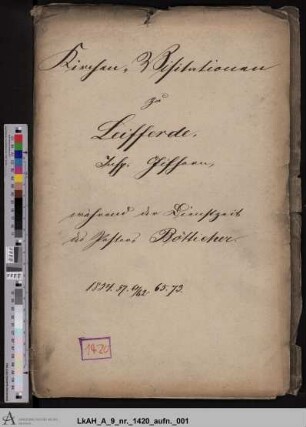 Kirchen-Visitationen
zu
Leifferde.
Insp. Gifhorn,
während der Dienstzeit
des Pastors Bötticher.
1854. 57. 65. 73
1420
LkAH_A_9_nr._1420_aufn._001